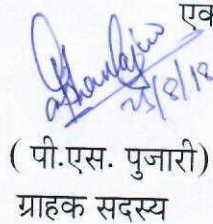 एक
25/8/18
( पी.एस. पुजारी)
ग्राहक सदस्य